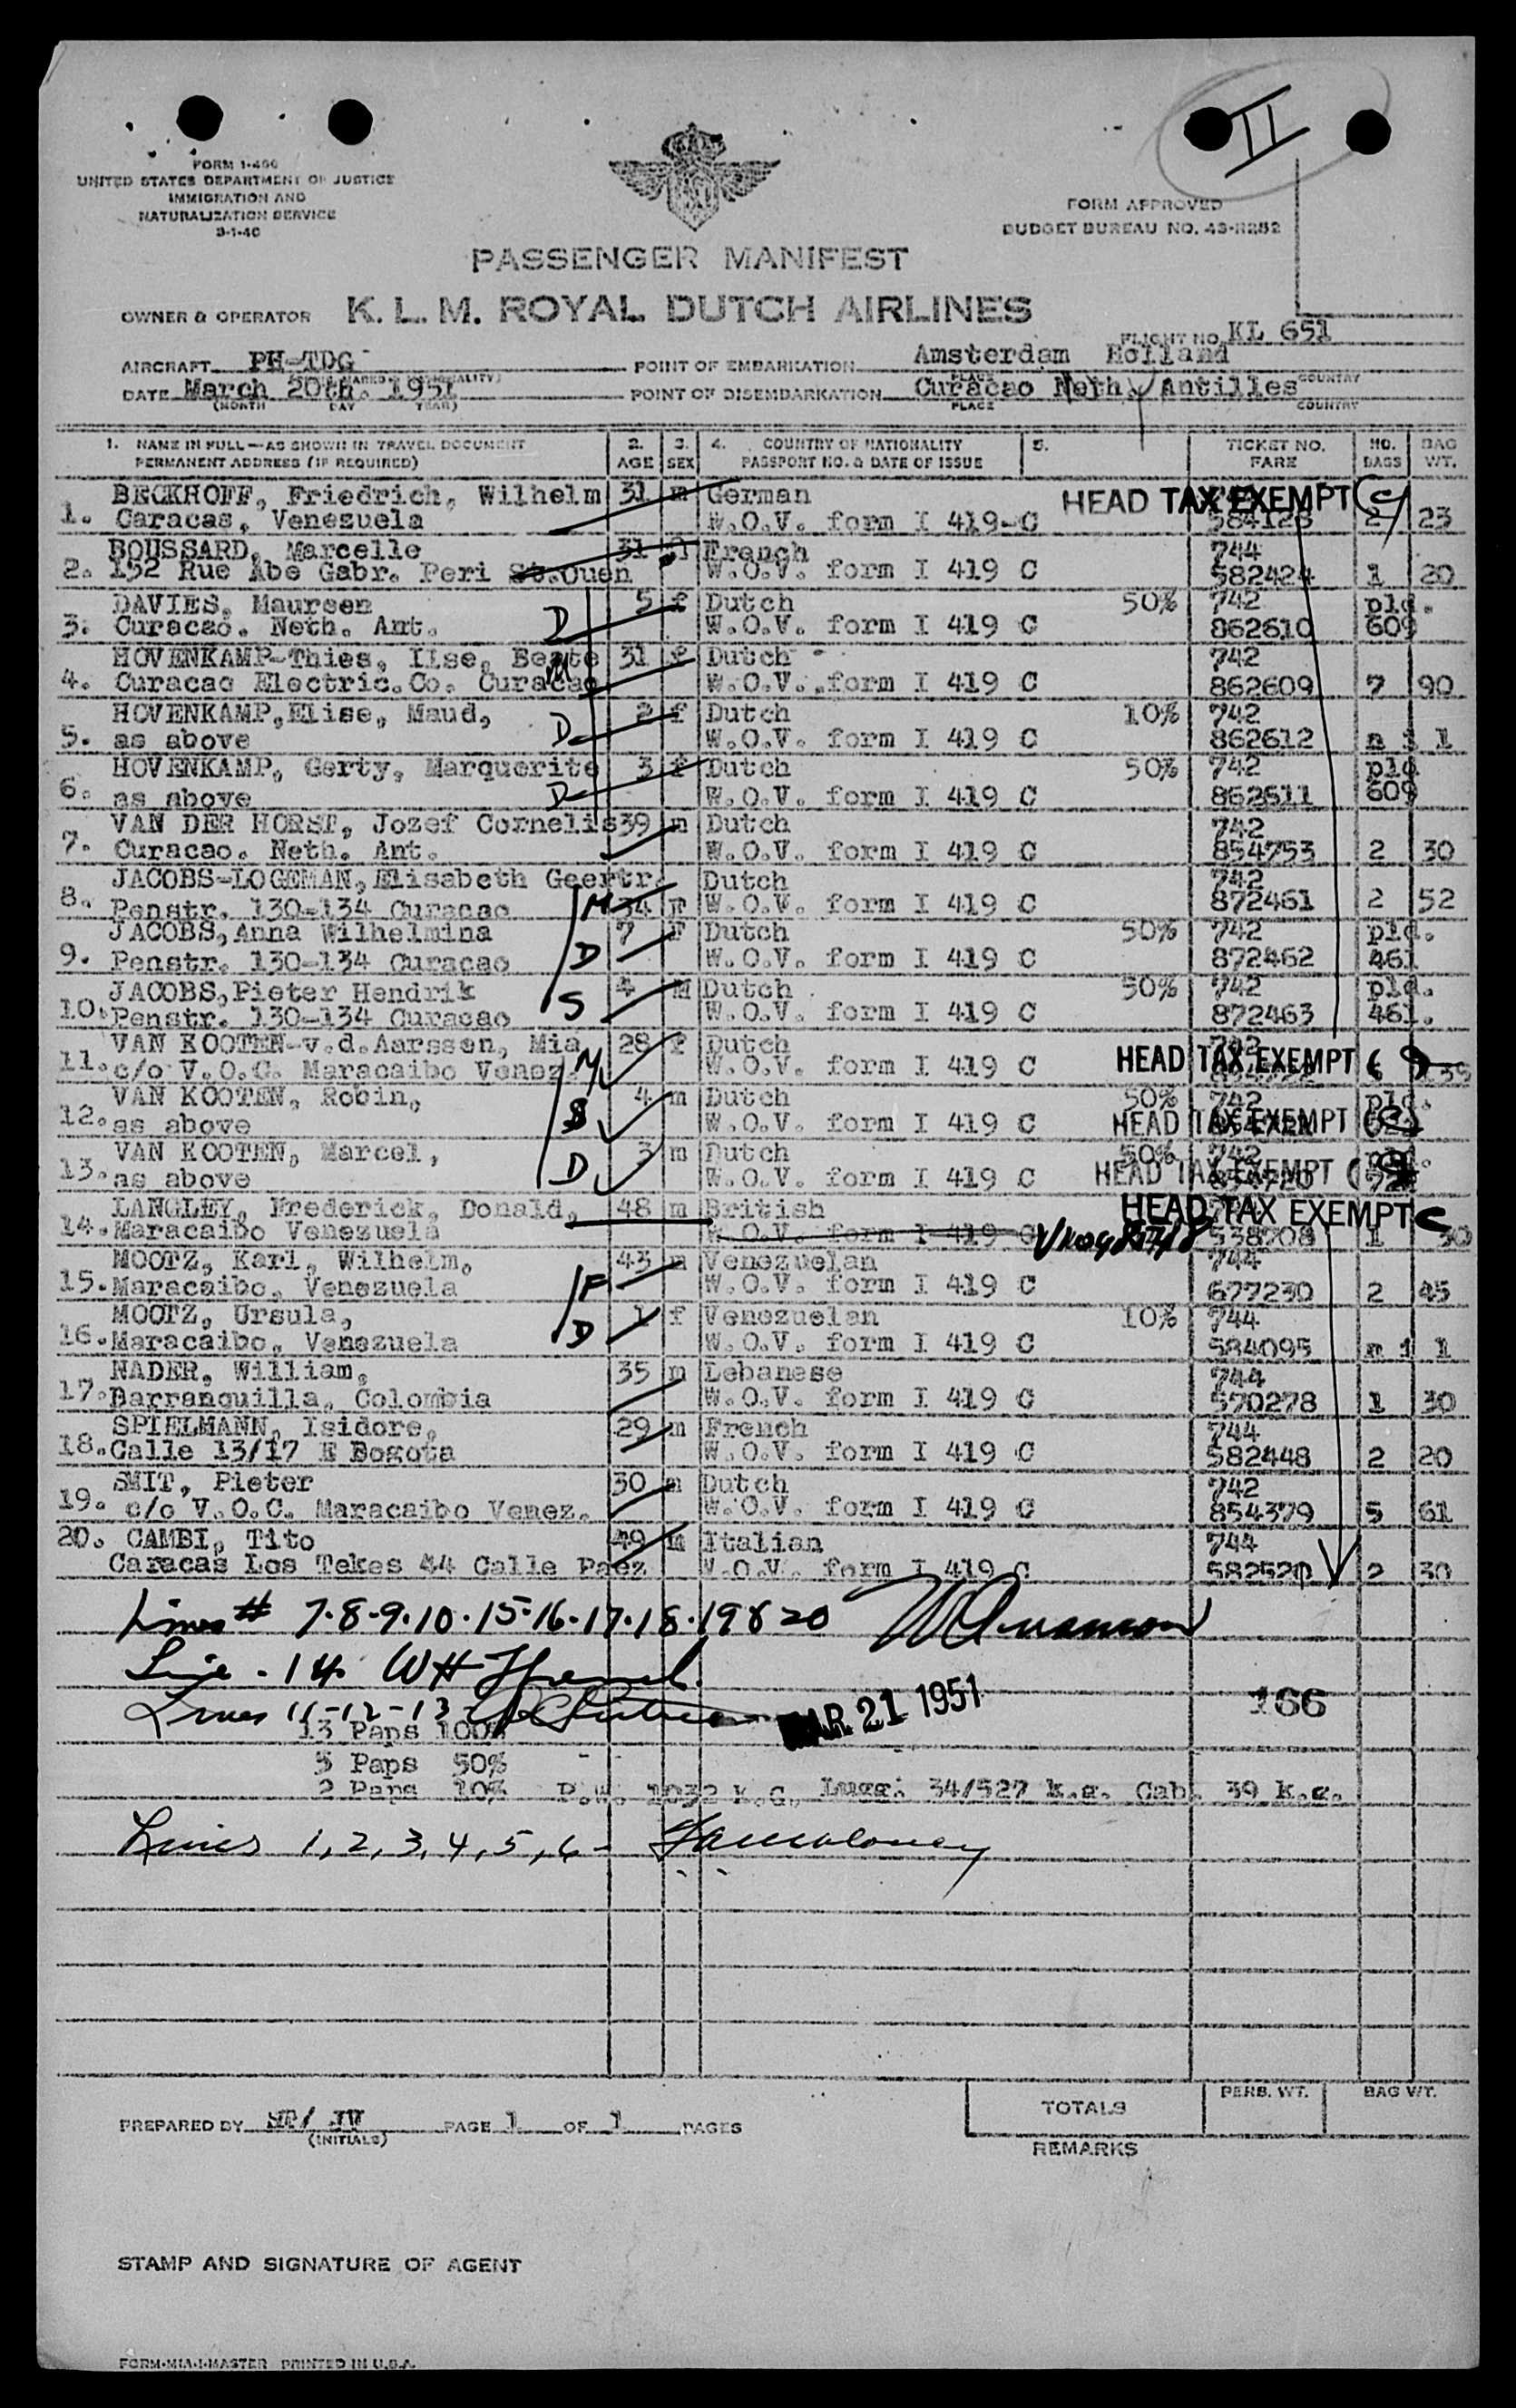 II
FORM I-466
UNITED STATES DEPARTMENT OF JUSTICE
IMMIGRATION AND
NATURALIZATION SERVICE
FORM APPROVED
BUDGET BUREAU NO. 43-R252
PASSENGER MANIFEST
OWNER & OPERATOR K. L. M. ROYAL DUTCH AIRLINES
FLIGHT NO. KL 651
AIRCRAFT PH-TDG POINT OF EMBARKATION Amsterdam Holland
PLACE COUNTRY
DATE March 20th. 1951 POINT OF DISEMBARKATION Curacao Neth. Antilles
(MONTH DAY YEAR) PLACE COUNTRY
1. NAME IN FULL—AS SHOWN IN TRAVEL DOCUMENT 2. 3. 4. COUNTRY OF NATIONALITY 5. TICKET NO. NO. BAG
PERMANENT ADDRESS (IF REQUIRED) AGE SEX PASSPORT NO. & DATE OF ISSUE FARE BAGS WT.
BECKHOFF, Friedrich, Wilhelm 31 m German HEAD TAX EXEMPT (C)
1. Caracas, Venezuela W.O.V. form I 419-C 584123 2 23
BOUSSARD, Marcelle 31 f French 744
2. 152 Rue Abe Gabr. Peri St.Ouen W.O.V. form I 419 C 582424 1 20
DAVIES, Maureen 5 f Dutch 50% 742 pld.
3. Curacao. Neth. Ant. D W.O.V. form I 419 C 862610 609
HOVENKAMP-Thies, Ilse, Beate 31 f Dutch 742
4. Curacao Electric.Co. Curacao M W.O.V. form I 419 C 862609 7 90
HOVENKAMP,Elise, Maud, 2 f Dutch 10% 742
5. as above D W.O.V. form I 419 C 862612 n i l
HOVENKAMP, Gerty, Marguerite 3 f Dutch 50% 742 pld
6. as above D W.O.V. form I 419 C 862611 609
VAN DER HORST, Jozef Cornelis 39 m Dutch 742
7. Curacao. Neth. Ant. W.O.V. form I 419 C 854753 2 30
JACOBS-LOGEMAN,Elisabeth Geertr. Dutch 742
8. Penstr. 130-134 Curacao M 34 F W.O.V. form I 419 C 872461 2 52
JACOBS,Anna Wilhelmina 7 F Dutch 50% 742 pld.
9. Penstr. 130-134 Curacao D W.O.V. form I 419 C 872462 461
JACOBS,Pieter Hendrik 4 M Dutch 50% 742 pld.
10. Penstr. 130-134 Curacao S W.O.V. form I 419 C 872463 461.
VAN KOOTEN-v.d.Aarssen, Mia 28 f Dutch 742
11. c/o V.O.C. Maracaibo Venez M W.O.V. form I 419 C HEAD TAX EXEMPT
VAN KOOTEN, Robin, 4 m Dutch 50% 742 pld.
12. as above S W.O.V. form I 419 C HEAD TAX EXEMPT
VAN KOOTEN, Marcel, 3 m Dutch 50% 742 pld.
13. as above D W.O.V. form I 419 C HEAD TAX EXEMPT
LANGLEY, Frederick, Donald, 48 m British HEAD TAX EXEMPT C
14. Maracaibo Venezuela W.O.V. form I 419 C 538208 1 30
MOOTZ, Karl, Wilhelm, 43 m Venezuelan 744
15. Maracaibo, Venezuela F W.O.V. form I 419 C 677230 2 45
MOOTZ, Ursula, 1 f Venezuelan 10% 744
16. Maracaibo, Venezuela D W.O.V. form I 419 C 584095 n i l
NADER, William, 35 m Lebanese 744
17. Barranquilla, Colombia W.O.V. form I 419 C 570278 1 30
SPIELMANN, Isidore, 29 m French 744
18. Calle 13/17 E Bogota W.O.V. form I 419 C 582448 2 20
SMIT, Pieter 30 m Dutch 742
19. c/o V.O.C. Maracaibo Venez. W.O.V. form I 419 C 854379 5 61
20. CAMBI, Tito 49 M Italian 744
Caracas Los Tekes 44 Calle Paez W.O.V. form I 419 C 582520 2 30
Lines # 7-8-9-10-15-16-17-18-19 & 20
Line - 14
Lines 11-12-13
MAR 21 1951 166
13 Paps 100%
5 Paps 50%
2 Paps 10% P.W. 1032 K.G. Lugg. 34/527 k.g. Cab. 39 K.g.
Lines 1, 2, 3, 4, 5, 6 -
PREPARED BY PAGE 1 OF 1 PAGES
(INITIALS)
TOTALS PERS. WT. BAG WT.
REMARKS
STAMP AND SIGNATURE OF AGENT
FORM-MIA-1-MASTER PRINTED IN U.S.A.